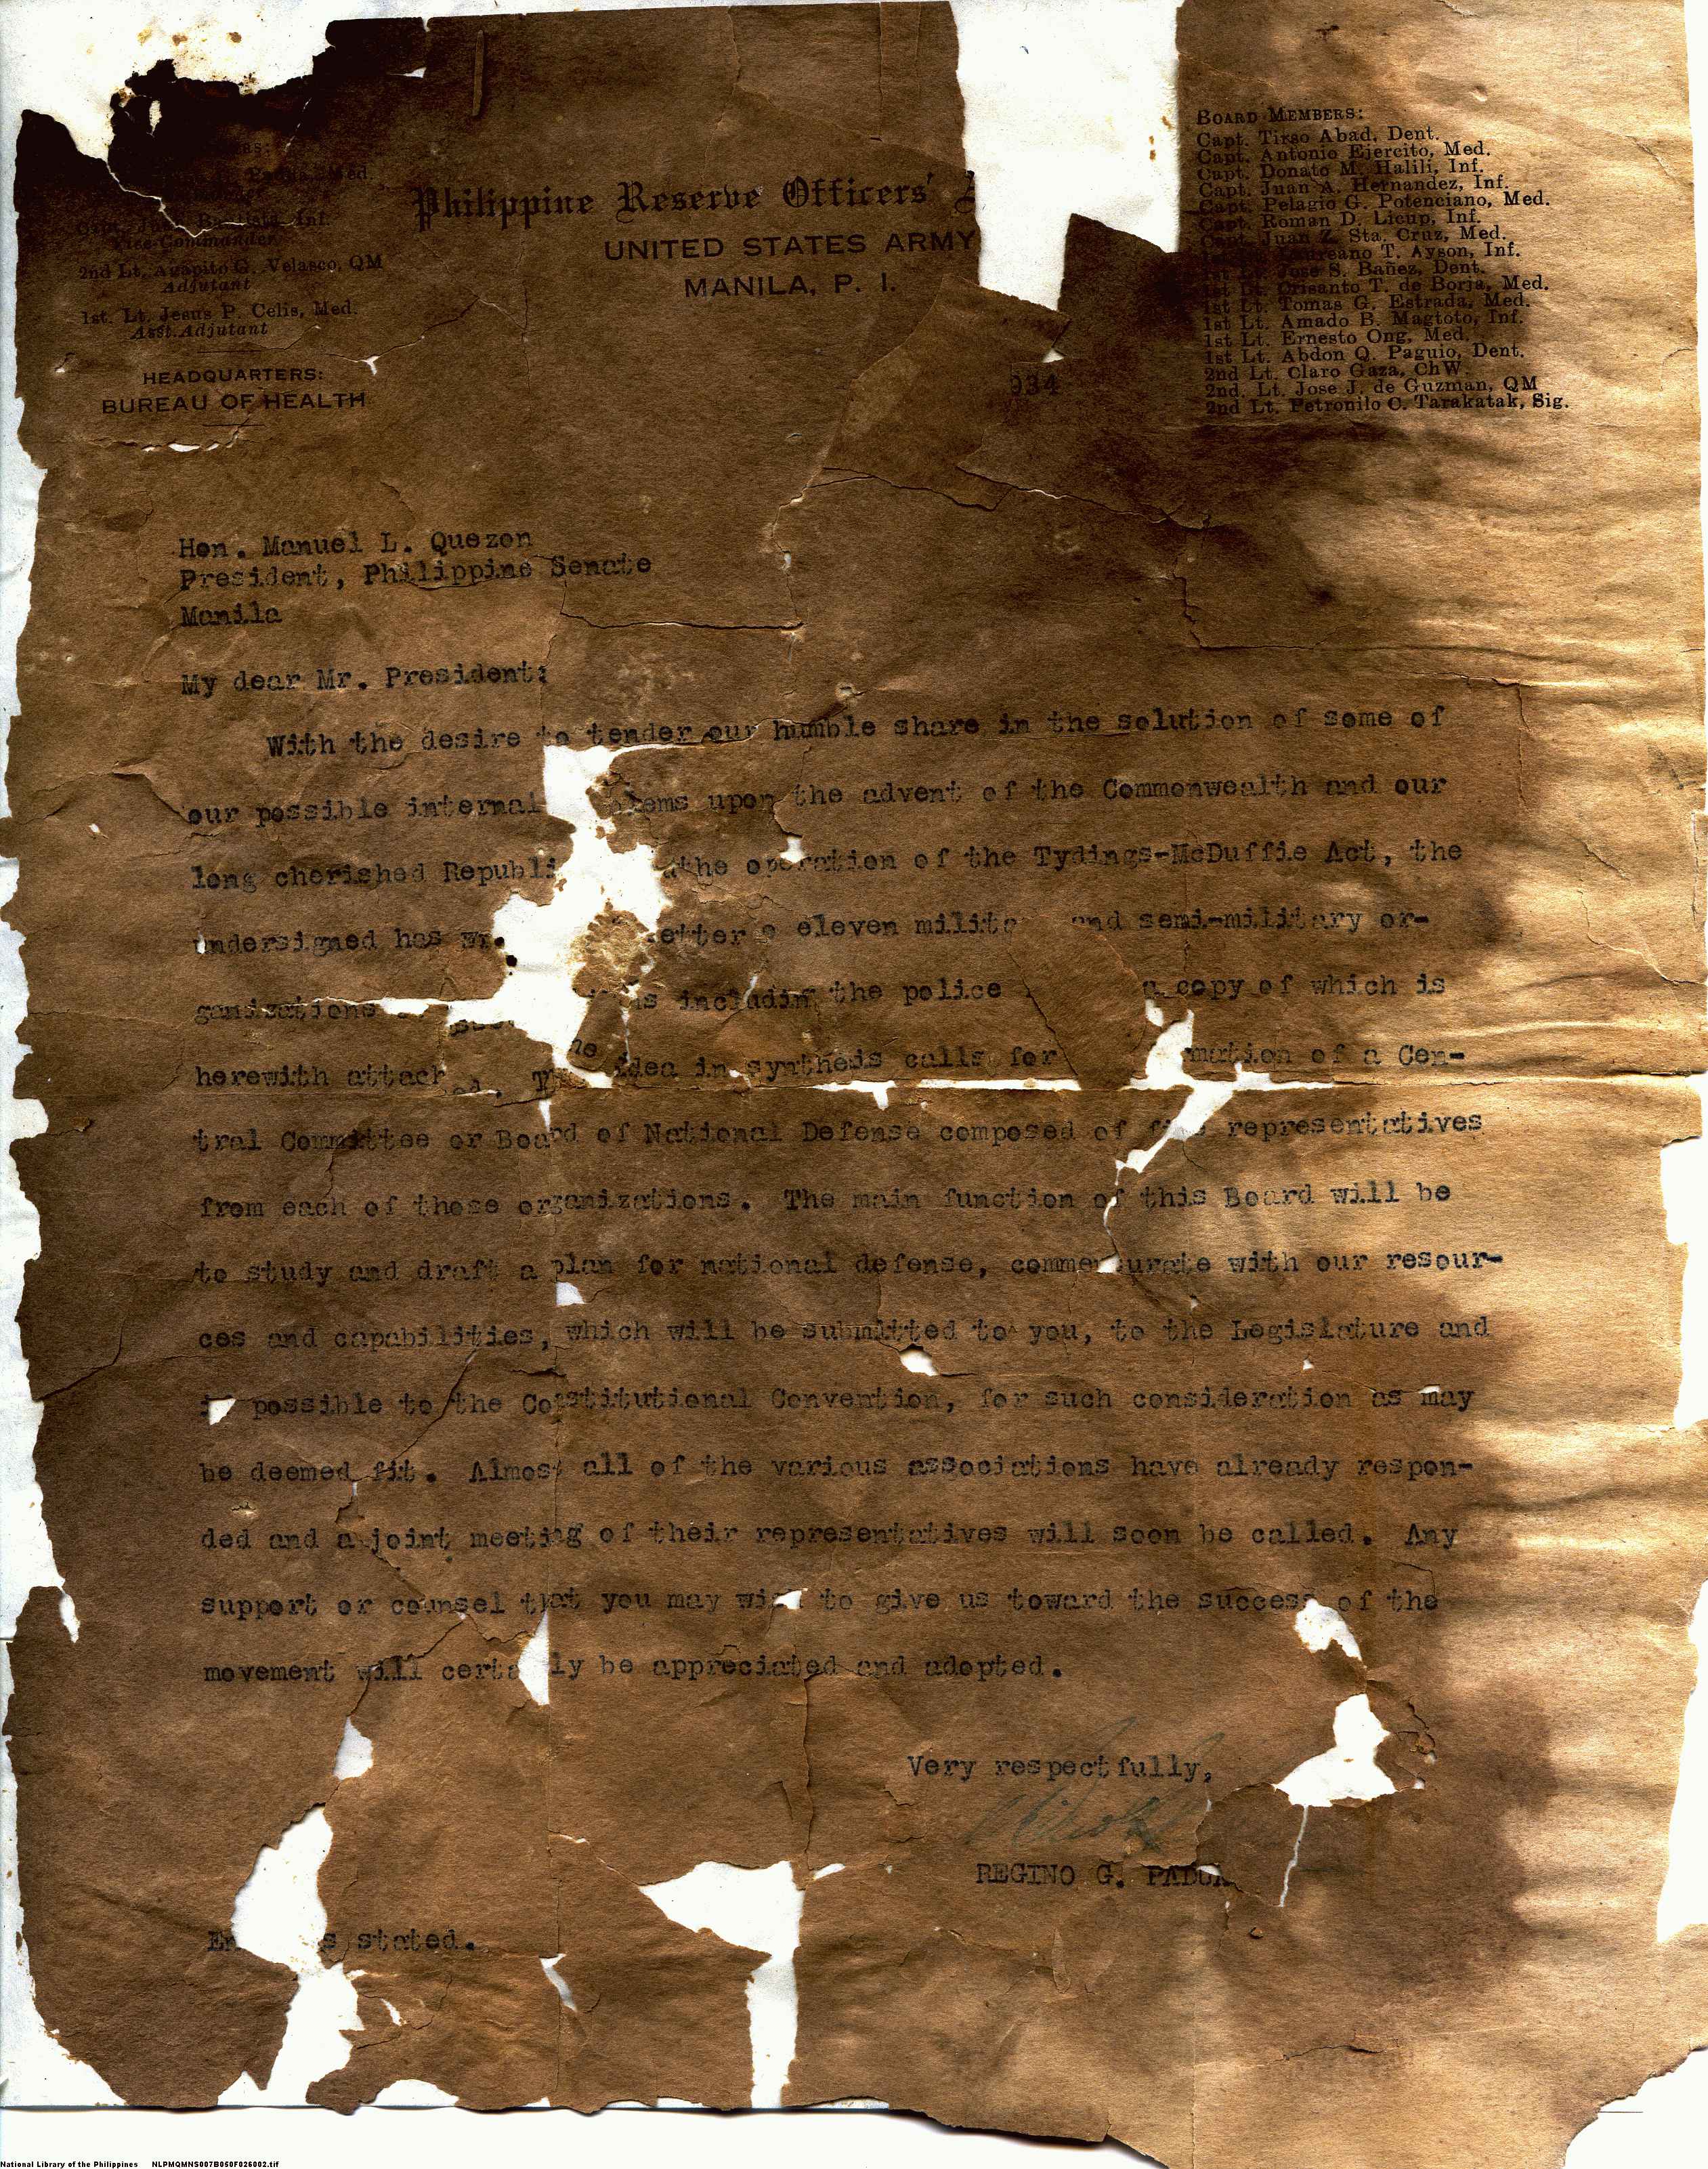 Capt. Jose Bautista, Inf.
Vice-Commander
2nd Lt. Agapito G. Velasco, QM
Adjutant
1st. Lt. Jesus P. Celis, Med.
Asst. Adjutant
HEADQUARTERS:
BUREAU OF HEALTH
Philippine Reserve Officers'
UNITED STATES ARMY
MANILA, P. I.
934
BOARD MEMBERS:
Capt. Tirso Abad, Dent.
Capt. Antonio Ejercito, Med.
Capt. Donato M. Halili, Inf.
Capt. Juan A. Hernandez, Inf.
Capt. Pelagio G. Potenciano, Med.
Capt. Roman D. Licup, Inf.
Capt. Juan Z. Sta. Cruz, Med.
T. Ayson, Inf.
1st Lt. Jose S. Bañez, Dent.
1st Lt. Crisanto T. de Borja, Med.
1st Lt. Tomas G. Estrada, Med.
1st Lt. Amado B. Magtoto, Inf.
1st Lt. Ernesto Ong, Med.
1st Lt. Abdon Q. Paguio, Dent.
2nd Lt. Claro Gaza, ChW
2nd. Lt. Jose J. de Guzman, QM
2nd Lt. Petronilo C. Tarakatak, Sig.
Hon. Manuel L. Quezon
President, Philippine Senate
Manila
My dear Mr. President:
With the desire to tender our humble share in the solution of some of
our possible internal upon the advent of the Commonwealth and our
long cherished Republi the operation of the Tydings-McDuffie Act, the
undersigned has etter eleven milita and semi-military or-
ganizations including the police a copy of which is
herewith attached. The idea in synthesis calls for mation of a Cen-
tral Committee or Board of National Defense composed of representatives
from each of those organizations. The main function of this Board will be
to study and draft a plan for national defense, commen urate with our resour-
ces and capabilities, which will be submitted to you, to the Legislature and
possible to the Constitutional Convention, for such consideration as may
be deemed fit. Almost all of the various associations have already respon-
ded and a joint meeting of their representatives will soon be called. Any
support or counsel that you may wi to give us toward the success of the
movement will certa ly be appreciated and adopted.
Very respectfully,
REGINO G. PADUA
En s stated.
National Library of the Philippines NLPMQMNS007B050F026002.tif